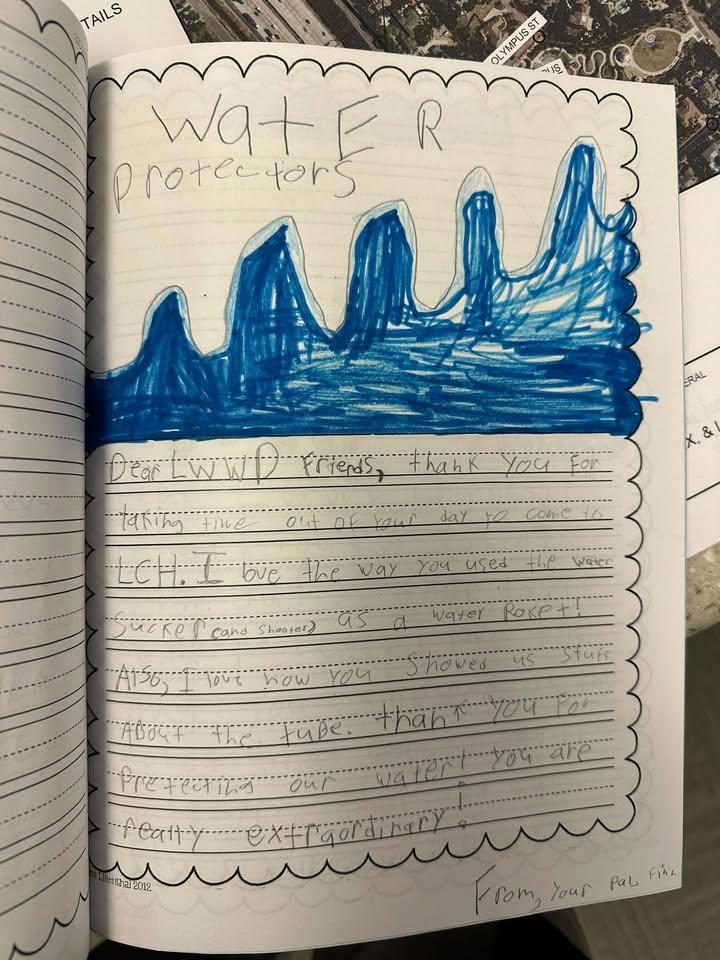 TAILS
OLYMPUS ST
PUS
WatER
protectors
ERAL
X, &
Dear LWWD Friends, thank you For
taking time out oF your day to come to
LCH. I love the way you used the water
Sucker (and Shooter) as a water Roket!
AlSo, I love how you Showed us stuff
ABout the tuBe. thank you For
Pretecting our water! you are
really extraordinary!
Lilienthal 2012
From, your pal